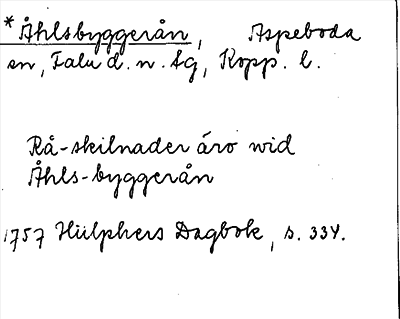 *Åhlsbyggerån, Aspeboda
sn, Falu d. n. tg, Kopp. l.
Rå-skilnader äro wid
Åhls-byggerån
1757 Hülphers Dagbok, s. 334.